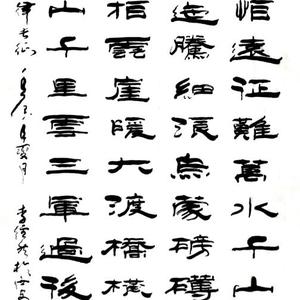 怕遠征難萬水千山
迤騰細浪烏蒙磅礴
拍雲崖暖大渡橋橫
山千里雪三軍過後
律长征